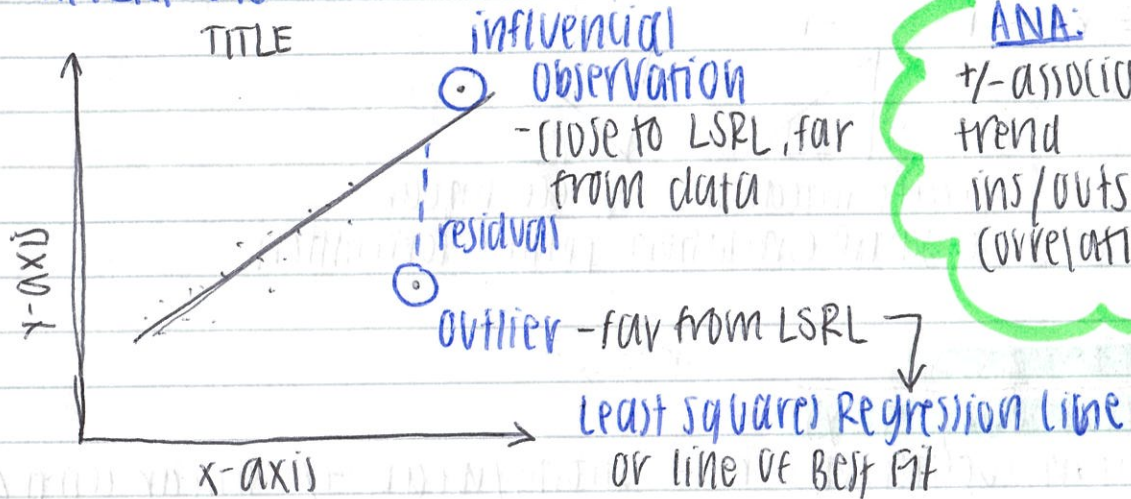 TITLE
influencial
observation
-close to LSRL, far
from data
residual
outlier - far from LSRL
Least Squares Regression Line
or line of Best Fit
y-axis
x-axis
ANA:
+/- associa
trend
ins/outs
correlati